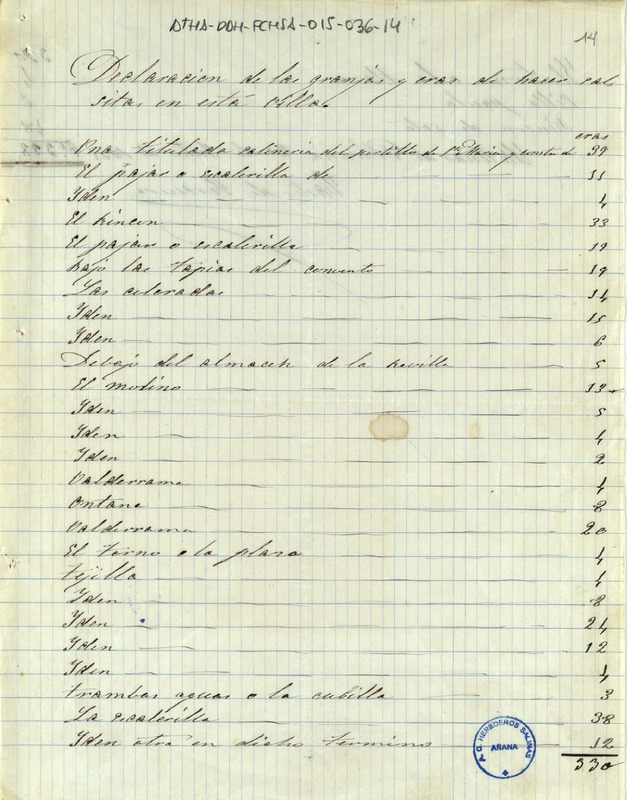 DTHA-DDH-FCHSA-015-036-14
14
Declaracion de las granjas y eras de hacer sal
sitas en está villa.
eras
Una titulada salineria del portillo de Sta Maria y consta de 39
El pajar o escalerilla de 11
Iden 4
El Rincon 33
El pajar o escalerilla 19
bajo las tapias del convento 19
Las coloradas 14
Iden 15
Iden 6
Debajo del almacen de la Revilla 5
El molino 12
Iden 5
Iden 4
Iden 2
Valderrama 4
Ontana 8
Valderrama 20
El torno o la plaza 4
tejilla 4
Iden 8
Iden 24
Iden 12
Iden 4
trambas aguas o la cubilla 3
La escalerilla 38
Iden otra en dicho termino 12
330
HEREDEROS SALINAS
AÑANA